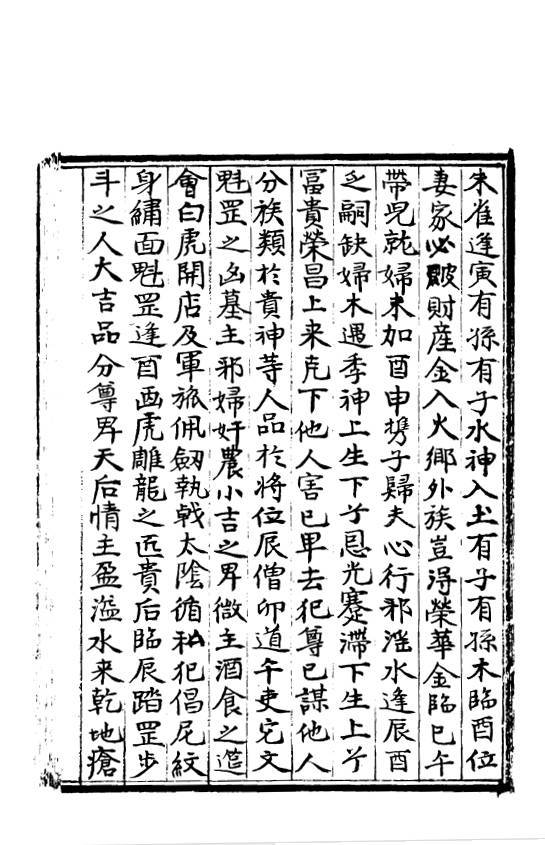 朱雀逢寅有孫有子水神入土有子有孫木臨酉位
妻家必皷財產金入火鄉外族豈得榮華金臨巳午
帶兒就婦未加酉申携子歸夫心行邪滛水逢辰酉
乏嗣缺婦木遇季神上生下兮恩光蹇滯下生上兮
冨貴榮昌上来克下他人害己卑去犯尊己謀他人
分族類於貴神等人品於將位辰僧卯道午吏戌文
魁罡之凶墓主邪婦奸農小吉之畀微主酒食之筵
會白虎開店及軍旅佩劔執㦸太隂循私犯倡尼紋
身繡面魁罡逢酉画虎雕龍之匠貴后臨辰踏罡步
斗之人大吉品分尊畀天后情主盈溢水来乾地瘡